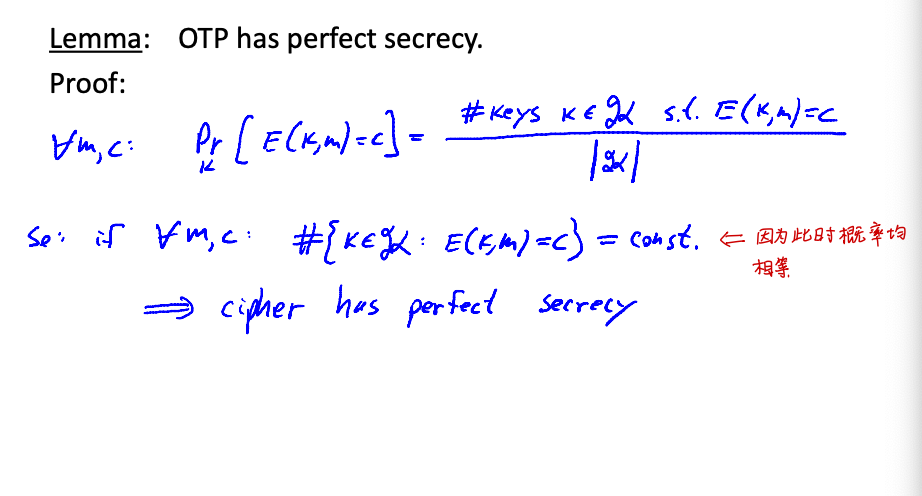 Lemma: OTP has perfect secrecy.
Proof:
∀m,c: Pr_K [ E(K,m)=c ] = (#keys K∈𝒦 s.t. E(K,m)=c) / |𝒦|
So: if ∀m,c: #{K∈𝒦 : E(K,m)=c} = const. ⇐ 因为此时概率均
相等
⟹ cipher has perfect secrecy